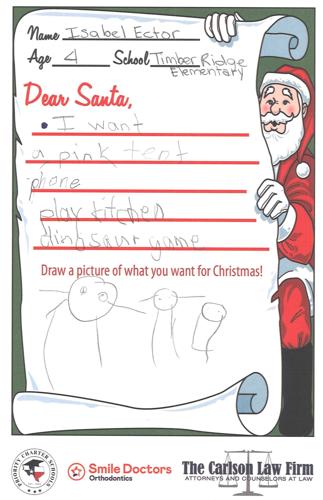 Name Isabel Ector
Age 4 School Timber Ridge
Elementary
Dear Santa,
• I want
a pink tent
phone
play kitchen
dinosaur game
Draw a picture of what you want for Christmas!
PRIORITY CHARTER SCHOOLS
Smile Doctors
Orthodontics
The Carlson Law Firm
ATTORNEYS AND COUNSELORS AT LAW